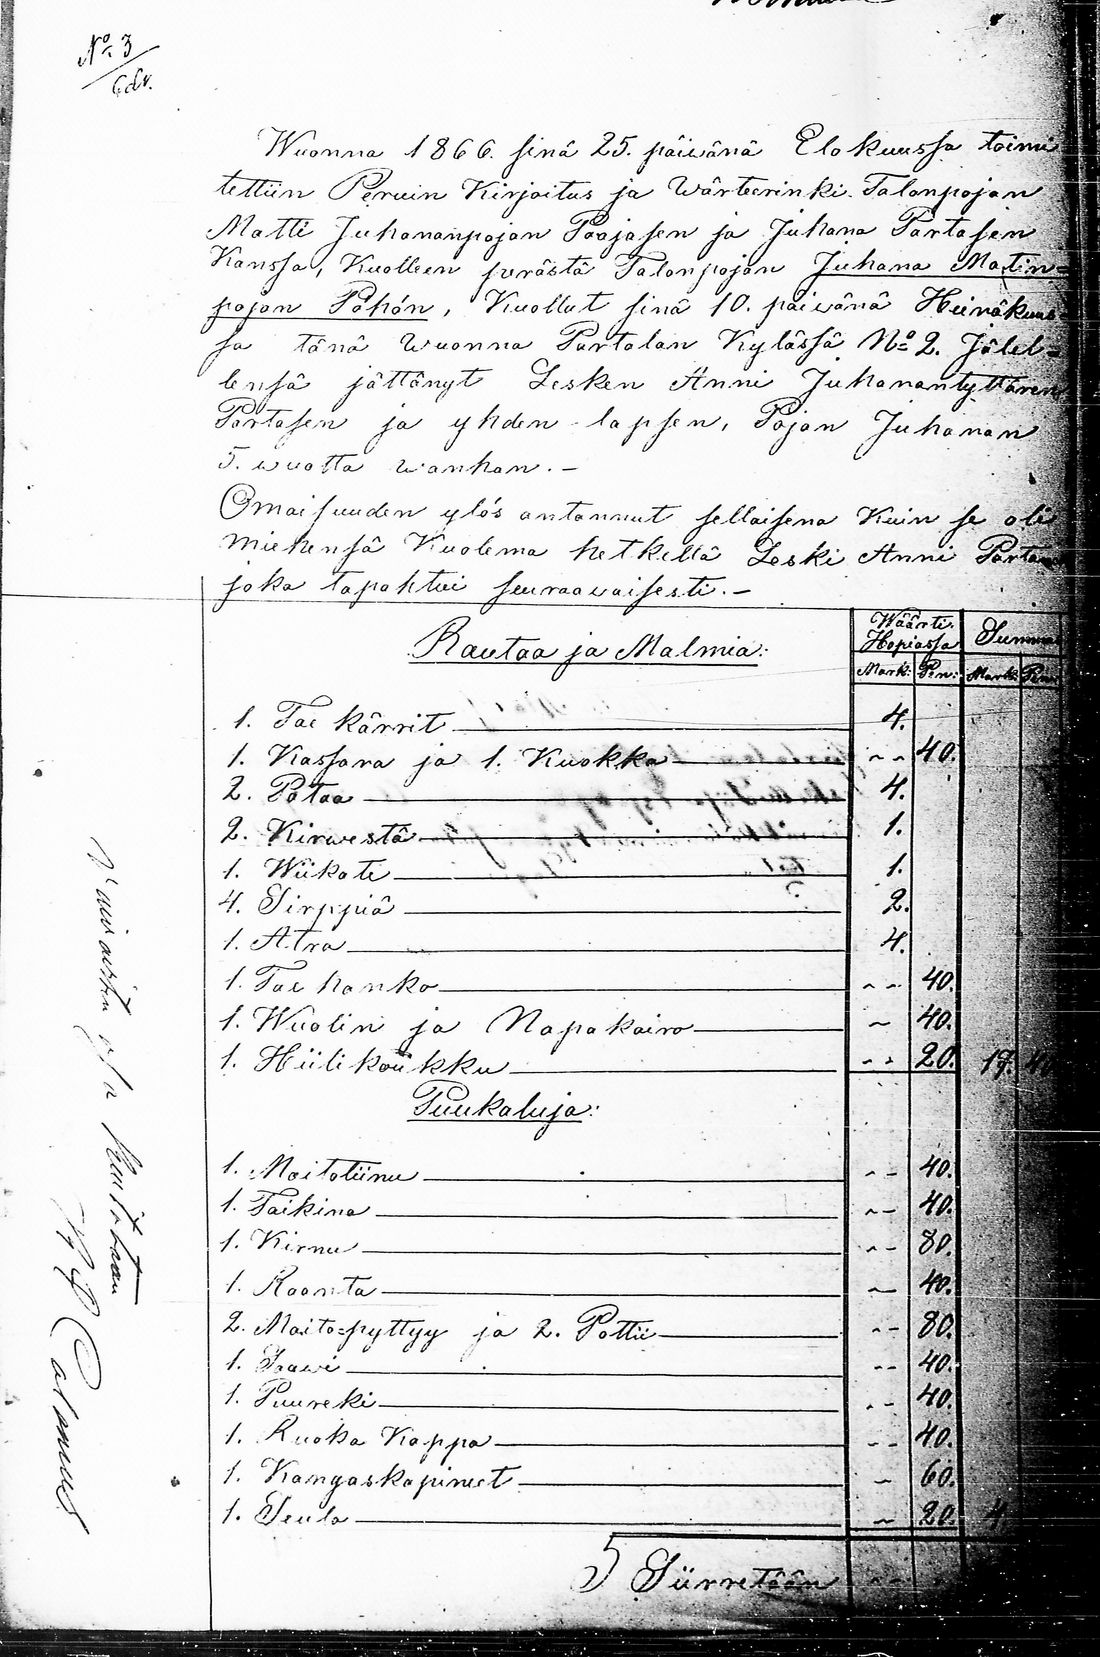 No 3
Wuonna 1866. sinä 25. päiwänä Elokuussa toimi
tettiin Peruin Kirjoitus ja Wärteerinki Talonpojan
Matti Juhananpojan Paajasen ja Juhana Partasen
Kanssa, Kuolleen perästä Talonpojan Juhana Matin-
pojan Pöhön, Kuollut sinä 10. päiwänä Heinäkuus
sa tänä wuonna Partalan Kylässä No 2. Jälel-
lensä jättänyt Lesken Anni Juhanantyttären
Partasen ja yhden lapsen, Pojan Juhanan
5. wuotta wanhan. -
Omaisuuden ylös antannut sellaisena Kuin se oli
miehensä Kuolema hetkellä Leski Anni
joka tapahtui seuraawaisesti. -
Rautaa ja Malmia: Wäärti Hopiassa Summa
Mark: Pen: Mark: Pen:
1. Tae kärrit 4.
1. Kassara ja 1. Kuokka -- 40.
2. Pataa 4.
2. Kirwestä 1.
1. Wiikate 1.
4. Sirppiä 2.
1. Atra 4.
1. Tae hanko -- 40.
1. Wuolin ja Napakaira - 40.
1. Hiilikoukku -- 20. 17. 40
Puukaluja:
1. Maitotiinu -- 40.
1. Taikina -- 40.
1. Kirnu -- 80.
1. Raanta - 40.
2. Maito=pyttyy ja 2. Pottii -- 80.
1. Saawi -- 40.
1. Puureki -- 40.
1. Ruoka Kappa -- 40.
1. Kangaskapineet - 60.
1. Seula - 20. 4.
Siirretään --